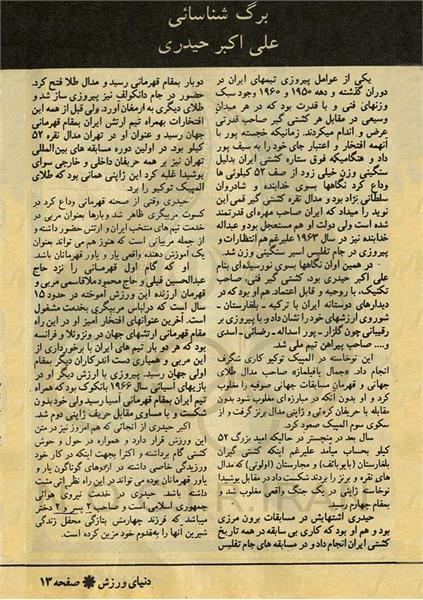 برگ شناسائی
علی اکبر حیدری
یکی از عوامل پیروزی تیمهای ایران در
دوران گذشته و دهه ۱۹۵۰ و ۱۹۶۰ وجود سبک
وزنهای فنی و با قدرت بود که در هر میدان
وسیعی در مقابل هر کشتی گیر صاحب قدرتی
عرض و اندام میکردند. زمانیکه خجسته پور با
آنهمه افتخار و اعتبار جای خود را به سیف پور
داد و هنگامیکه فوق ستاره کشتی ایران بدلیل
سنگینی وزن خیلی زود از صف ۵۲ کیلوئی ها
وداع کرد نگاهها بسوی خدابنده و شادروان
سلطانی نژاد بود و مدال نقره کشتی گیر قمی این
نوید را میداد که ایران صاحب مهره ای قدرتمند
شده است ولی دولت او هم مستعجل بود و عبداله
خدابنده نیز در سال ۱۹۶۳ علیرغم انتظارات و
پیروزی در جام تفلیس اسیر سنگینی وزن شد.
در همین اوان نگاهها بسوی نورسیده ای بنام
علی اکبر حیدری بود. کشتی گیر فنی، صاحب
تکنیک با روحیه و قابل اعتماد. هم او بود که در
دیدارهای دوستانه ایران با ترکیه ـ بلغارستان ـ
شوروی ارزشهای خود را نشان داد و با پیروزی بر
رقیبانی چون گلزار ـ پور اسداله ـ رضائی ـ اسدی
و.... صاحب پیراهن تیم ملی شد.
این نوخاسته در المپیک توکیو کاری شگرف
انجام داد. «جمال یافیلمازه صاحب مدال طلای
جهانی و قهرمان مسابقات جهانی صوفیه را مغلوب
کرد و او بدون آنکه در مبارزه ای مغلوب شود بدون
مقابله با حریفان کره ئی و ژاپنی مدال برنز گرفت و از
سکوی سوم المپیک صعود کرد.
سال بعد در منچستر در حالیکه امید بزرگ ۵۲
کیلو بحساب میآمد علیرغم اینکه کشتی گیران
بلغارستان (بایوباثف) و مجارستان (اولوتی) که مدال
های نقره و برنز را بردند شکست داد در مقابل یوشیدا
نوخاسته ژاپنی در یک جنگ واقعی مغلوب شد و
بمقام چهارم رسید.
حیدری اشتهایش در مسابقات برون مرزی
بود و هم او بود که کاری بی سابقه در همه تاریخ
کشتی ایران انجام داد و در مسابقه های جام تفلیس
دوبار بمقام قهرمانی رسید و مدال طلا فتح کرد.
حضور در جام دانکولف نیز پیروزی ساز شد و
طلای دیگری به ارمغان آورد. ولی قبل از همه این
افتخارات بهمراه تیم ارتش ایران بمقام قهرمانی
جهان رسید و عنوان او در تهران مدال نقره ۵۲
کیلو بود. در اولین دوره مسابقه های بین المللی
تهران نیز بر همه حریفان داخلی و خارجی سوای
یوشیدا غلبه کرد این ژاپنی همانی بود که طلای
المپیک توکیو را برد.
حیدری وقتی از صحنه قهرمانی وداع کرد در
کسوت مربیگری ظاهر شد و بارها بعنوان مربی در
خدمت تیم های منتخب ایران و ارتش حضور داشته و
از جمله مربیانی است که هنوز هم می تواند بعنوان
یک آموزش دهنده واقعی یار و یاور قهرمانان باشد.
او که گام اول قهرمانی را نزد حاج
عبدالحسین فیلی و حاج محمود ملاقاسمی مربی و
قهرمان ارزنده این ورزش آموخته در حدود ۱۵
سال است که در لباس مربیگری بخدمت مشغول
است. آخرین عنوانهای افتخار آمیز او در این راه
مقام قهرمانی ارتشهای جهان در ونزوئلا و فرانسه
بود که هر دو بار تیم های ایران با برخورداری از
این مربی و همیاری دست اندرکاران دیگر بمقام
اولی جهان رسید. پیروزی با ارزش دیگر او در
بازیهای آسیائی سال ۱۹۶۶ بانکوک بود که همراه
تیم ایران بمقام قهرمانی آسیا رسید ولی خود بدون
شکست و با مساوی مقابل حریف ژاپنی دوم شد.
اکبر حیدری از آنجائی که هم امروز نیز در متن
این ورزش قرار دارد و همواره در حول و حوش
کشتی گام برداشته و اکثرا بجهت اینکه در کار خود
ورزیدگی خاصی داشته در اردوهای گوناگون یار و
یاور قهرمانان بوده می تواند در این راه نظراتی مثبت
داشته باشد. حیدری در خدمت نیروی هوائی
جمهوری اسلامی است و صاحب ۲ پسر و ۲ دختر
میباشد که فرزند چهارمش بتازگی محفل زندگی
شیرین آنها را به قدوم خود مزین کرده است.
دنیای ورزش ✱ صفحه ۱۳